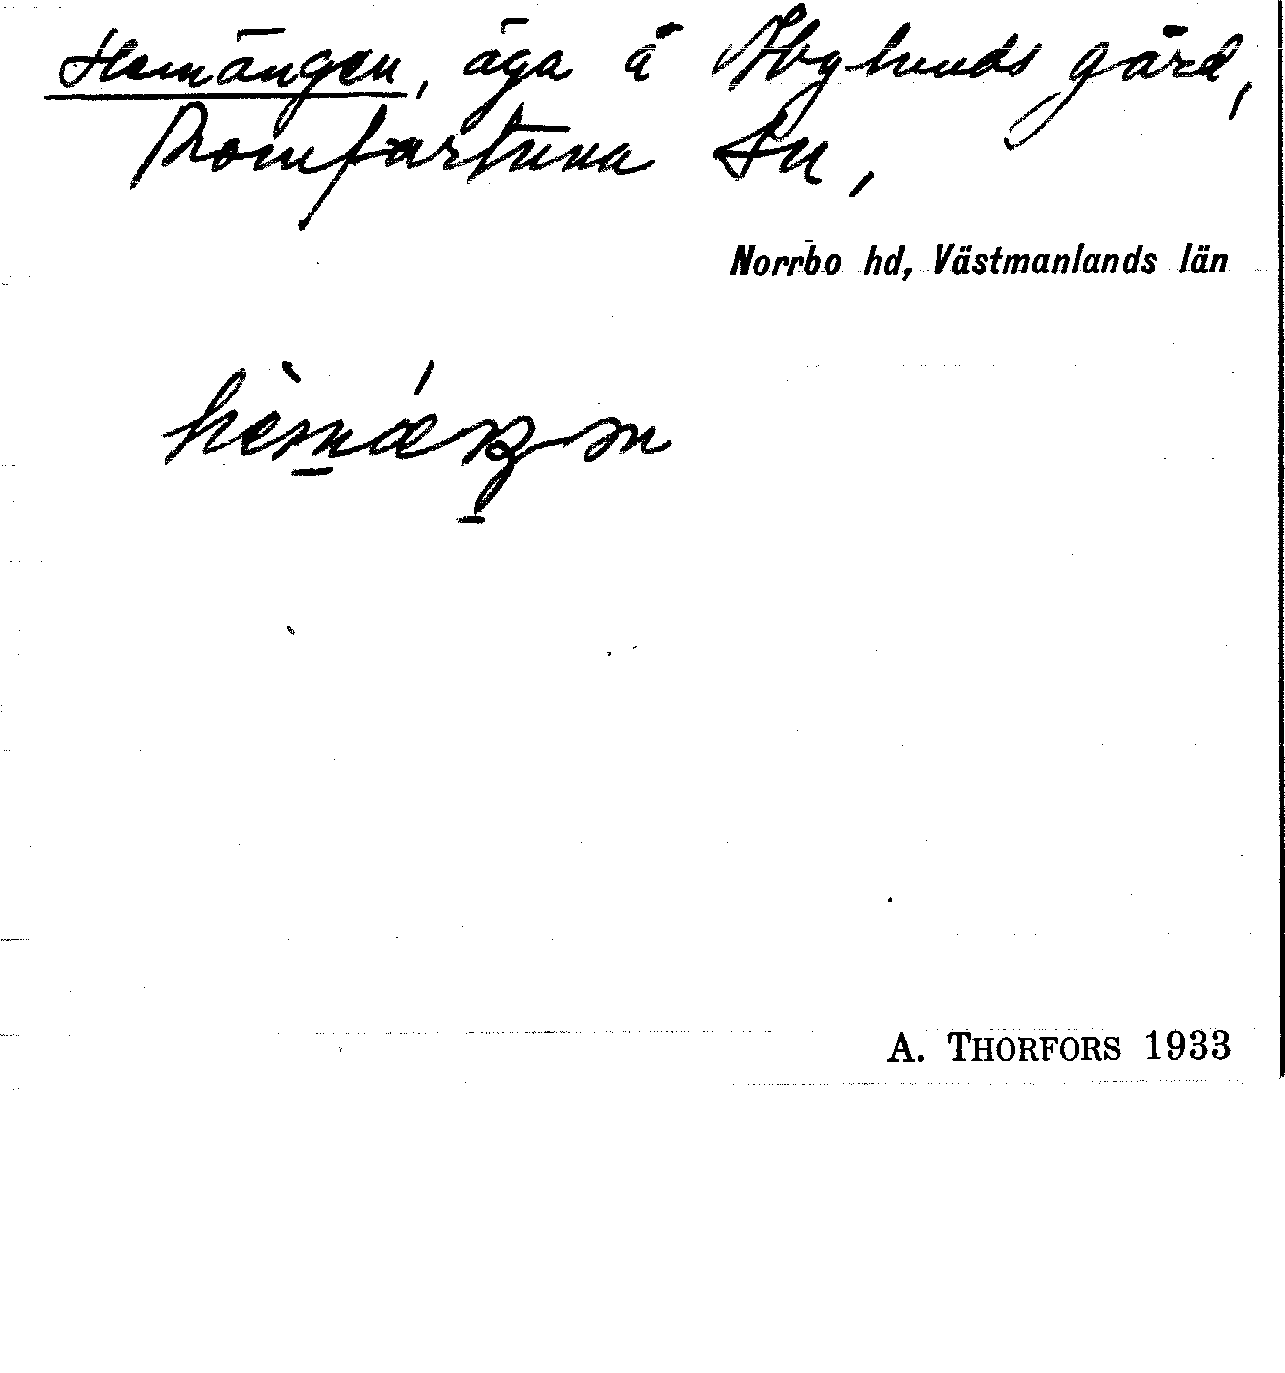 Hemängen, äga å Åbylunds gård,
Romfartuna sn,
Norrbo hd, Västmanlands län
A. THORFORS 1933